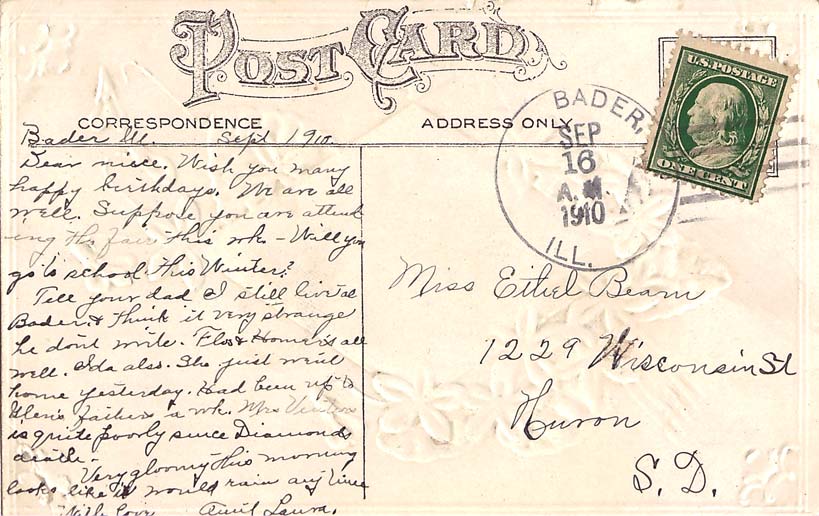 POST CARD
CORRESPONDENCE
ADDRESS ONLY
U.S. POSTAGE
ONE CENT
BADER,
SEP
16
A.M.
1910
ILL.
Bader Ill. Sept 1910.
Dear niece. Wish you many
happy birthdays. We are all
well. Suppose you are attend
ing the fair this wk – Will you
go to school this Winter?
Tell your dad I still live at
Bader & think it very strange
he dont write. Flo & Homer's all
well. Ida also. She just went
home yesterday. Had been up to
Glen's father's a wk. Mrs
is quite poorly since Diamonds
death.
Very gloomy this morning
looks like it would rain any time
With love Aunt Laura.
Miss Ethel Beam
1229 Wisconsin St
Huron
S. D.